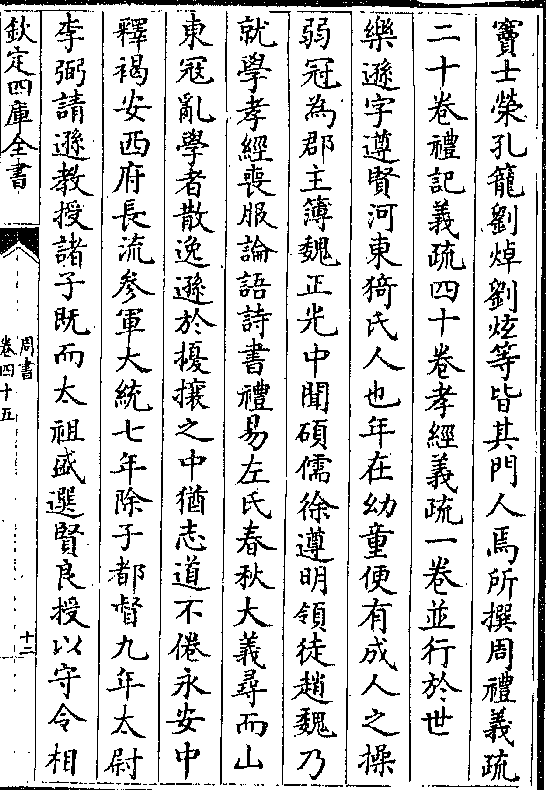 竇士榮孔籠劉焯劉炫等皆其門人焉所撰周禮義疏
二十卷禮記義疏四十卷孝經義疏一卷並行於世
樂遜字遵賢河東猗氏人也年在幼童便有成人之操
弱冠為郡主簿魏正光中聞碩儒徐遵明領徒趙魏乃
就學孝經喪服論語詩書禮易左氏春秋大義尋而山
東寇亂學者散逸遜於擾攘之中猶志道不倦永安中
釋褐安西府長流參軍大統七年除子都督九年太尉
李弼請遜教授諸子既而太祖盛選賢良授以守令相
欽定四庫全書
周書
卷四十五
十二